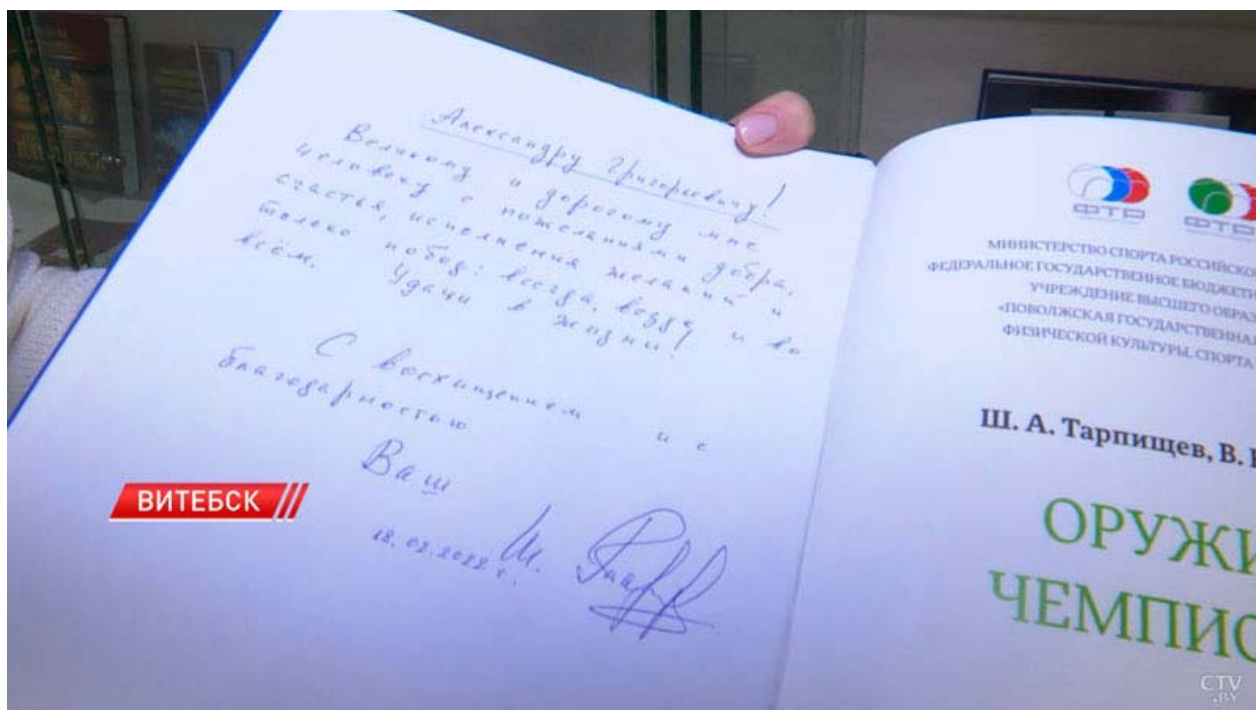 Александру Григорьевичу!
Великому и дорогому мне
человеку с пожеланиями добра,
счастья, исполнения желаний и
только побед: всегда, везде и во
всём. Удачи в жизни!
С восхищением и с
благодарностью
Ваш
18.02.2022 г. Ш.
ВИТЕБСК
ФТР ФТР
МИНИСТЕРСТВО СПОРТА РОССИЙСКО
ФЕДЕРАЛЬНОЕ ГОСУДАРСТВЕННОЕ БЮДЖЕТН
УЧРЕЖДЕНИЕ ВЫСШЕГО ОБРАЗ
«ПОВОЛЖСКАЯ ГОСУДАРСТВЕННА
ФИЗИЧЕСКОЙ КУЛЬТУРЫ, СПОРТА
Ш. А. Тарпищев, В.
ОРУЖИ
ЧЕМПИО
CTV
.BY